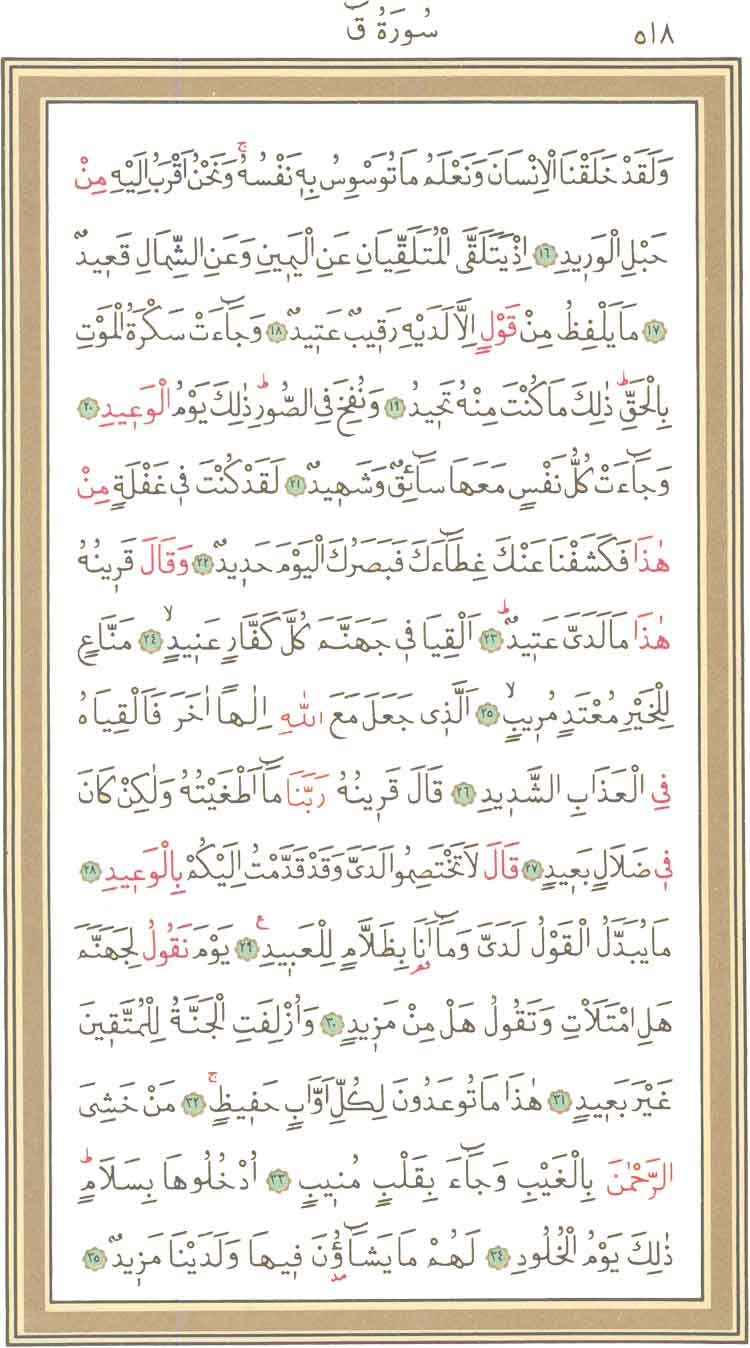 ٥١٨ سُورَةُ قٓ
وَلَقَدْ خَلَقْنَا الْاِنْسَانَ وَنَعْلَمُ مَا تُوَسْوِسُ بِهٖ نَفْسُهُۚ وَنَحْنُ اَقْرَبُ اِلَيْهِ مِنْ
حَبْلِ الْوَرٖيدِ ﴿١٦﴾ اِذْ يَتَلَقَّى الْمُتَلَقِّيَانِ عَنِ الْيَمٖينِ وَعَنِ الشِّمَالِ قَعٖيدٌ
﴿١٧﴾ مَا يَلْفِظُ مِنْ قَوْلٍ اِلَّا لَدَيْهِ رَقٖيبٌ عَتٖيدٌ ﴿١٨﴾ وَجَٓاءَتْ سَكْرَةُ الْمَوْتِ
بِالْحَقِّؕ ذٰلِكَ مَا كُنْتَ مِنْهُ تَحٖيدُ ﴿١٩﴾ وَنُفِخَ فِي الصُّورِؕ ذٰلِكَ يَوْمُ الْوَعٖيدِ ﴿٢٠﴾
وَجَٓاءَتْ كُلُّ نَفْسٍ مَعَهَا سَٓائِقٌ وَشَهٖيدٌ ﴿٢١﴾ لَقَدْ كُنْتَ فٖي غَفْلَةٍ مِنْ
هٰذَا فَكَشَفْنَا عَنْكَ غِطَٓاءَكَ فَبَصَرُكَ الْيَوْمَ حَدٖيدٌ ﴿٢٢﴾ وَقَالَ قَرٖينُهُ
هٰذَا مَا لَدَيَّ عَتٖيدٌؕ ﴿٢٣﴾ اَلْقِيَا فٖي جَهَنَّمَ كُلَّ كَفَّارٍ عَنٖيدٍۙ ﴿٢٤﴾ مَنَّاعٍ
لِلْخَيْرِ مُعْتَدٍ مُرٖيبٍۙ ﴿٢٥﴾ اَلَّذٖي جَعَلَ مَعَ اللّٰهِ اِلٰهًا اٰخَرَ فَاَلْقِيَاهُ
فِي الْعَذَابِ الشَّدٖيدِ ﴿٢٦﴾ قَالَ قَرٖينُهُ رَبَّنَا مَٓا اَطْغَيْتُهُ وَلٰكِنْ كَانَ
فٖي ضَلَالٍ بَعٖيدٍ ﴿٢٧﴾ قَالَ لَا تَخْتَصِمُوا لَدَيَّ وَقَدْ قَدَّمْتُ اِلَيْكُمْ بِالْوَعٖيدِ ﴿٢٨﴾
مَا يُبَدَّلُ الْقَوْلُ لَدَيَّ وَمَٓا اَنَا۬ بِظَلَّامٍ لِلْعَبٖيدِ ࣖ ﴿٢٩﴾ يَوْمَ نَقُولُ لِجَهَنَّمَ
هَلِ امْتَلَاْتِ وَتَقُولُ هَلْ مِنْ مَزٖيدٍ ﴿٣٠﴾ وَاُزْلِفَتِ الْجَنَّةُ لِلْمُتَّقٖينَ
غَيْرَ بَعٖيدٍ ﴿٣١﴾ هٰذَا مَا تُوعَدُونَ لِكُلِّ اَوَّابٍ حَفٖيظٍۚ ﴿٣٢﴾ مَنْ خَشِيَ
الرَّحْمٰنَ بِالْغَيْبِ وَجَٓاءَ بِقَلْبٍ مُنٖيبٍ ﴿٣٣﴾ اُدْخُلُوهَا بِسَلَامٍؕ
ذٰلِكَ يَوْمُ الْخُلُودِ ﴿٣٤﴾ لَهُمْ مَا يَشَٓاؤُ۫نَ فٖيهَا وَلَدَيْنَا مَزٖيدٌ ﴿٣٥﴾